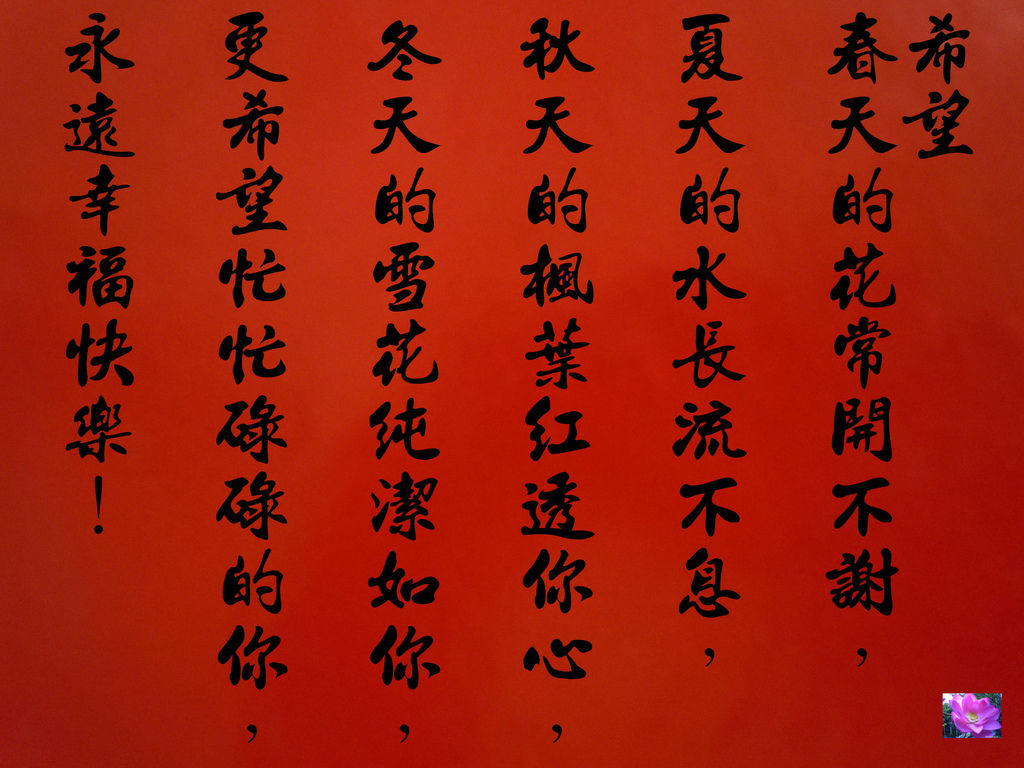 希望
春天的花常開不謝，
夏天的水長流不息，
秋天的楓葉紅透你心，
冬天的雪花純潔如你，
更希望忙忙碌碌的你，
永遠幸福快樂！